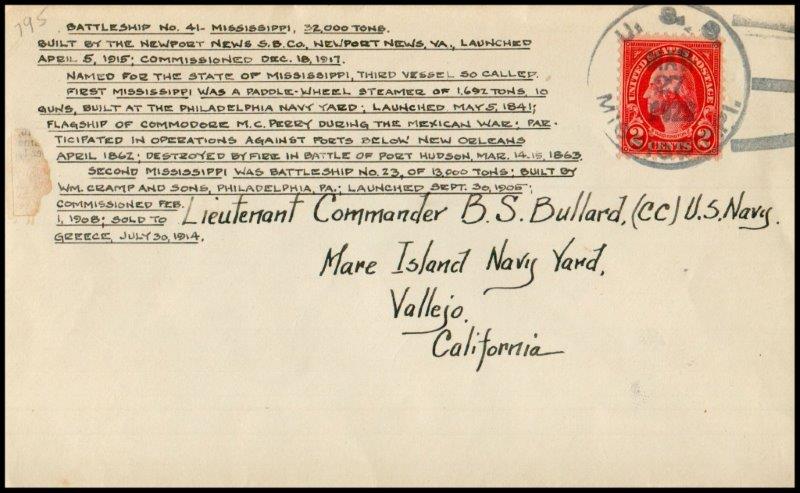 795
BATTLESHIP NO. 41- MISSISSIPPI, 32,000 TONS.
BUILT BY THE NEWPORT NEWS S.B.CO., NEWPORT NEWS, VA., LAUNCHED
APRIL 5, 1915; COMMISSIONED DEC. 18, 1917.
NAMED FOR THE STATE OF MISSISSIPPI, THIRD VESSEL SO CALLED.
FIRST MISSISSIPPI WAS A PADDLE-WHEEL STEAMER OF 1,692 TONS, 10
GUNS, BUILT AT THE PHILADELPHIA NAVY YARD; LAUNCHED MAY 5, 1841;
FLAGSHIP OF COMMODORE M.C. PERRY DURING THE MEXICAN WAR; PAR-
TICIPATED IN OPERATIONS AGAINST FORTS BELOW NEW ORLEANS
APRIL 1862; DESTROYED BY FIRE IN BATTLE OF PORT HUDSON, MAR. 14-15, 1863.
SECOND MISSISSIPPI WAS BATTLESHIP NO. 23, OF 13,000 TONS; BUILT BY
WM. CRAMP AND SONS, PHILADELPHIA, PA.; LAUNCHED SEPT. 30, 1905;
COMMISSIONED FEB.
1, 1908; SOLD TO
GREECE, JULY 30, 1914.
Lieutenant Commander B. S. Bullard, (CC) U.S. Navy.
Mare Island Navy Yard,
Vallejo,
California
U. S. S.
27
UNITED STATES POSTAGE
WASHINGTON
2 CENTS 2